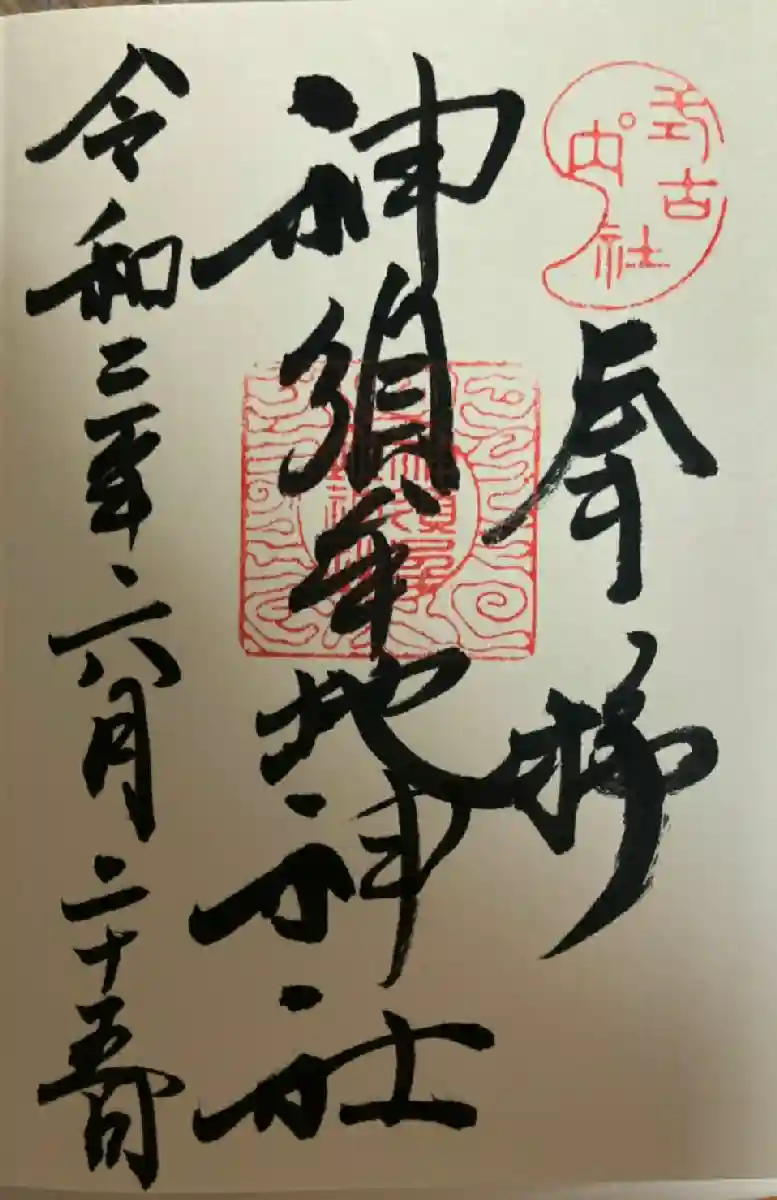 式内
古社
奉拝
神須牟地神社
令和三年六月二十五日